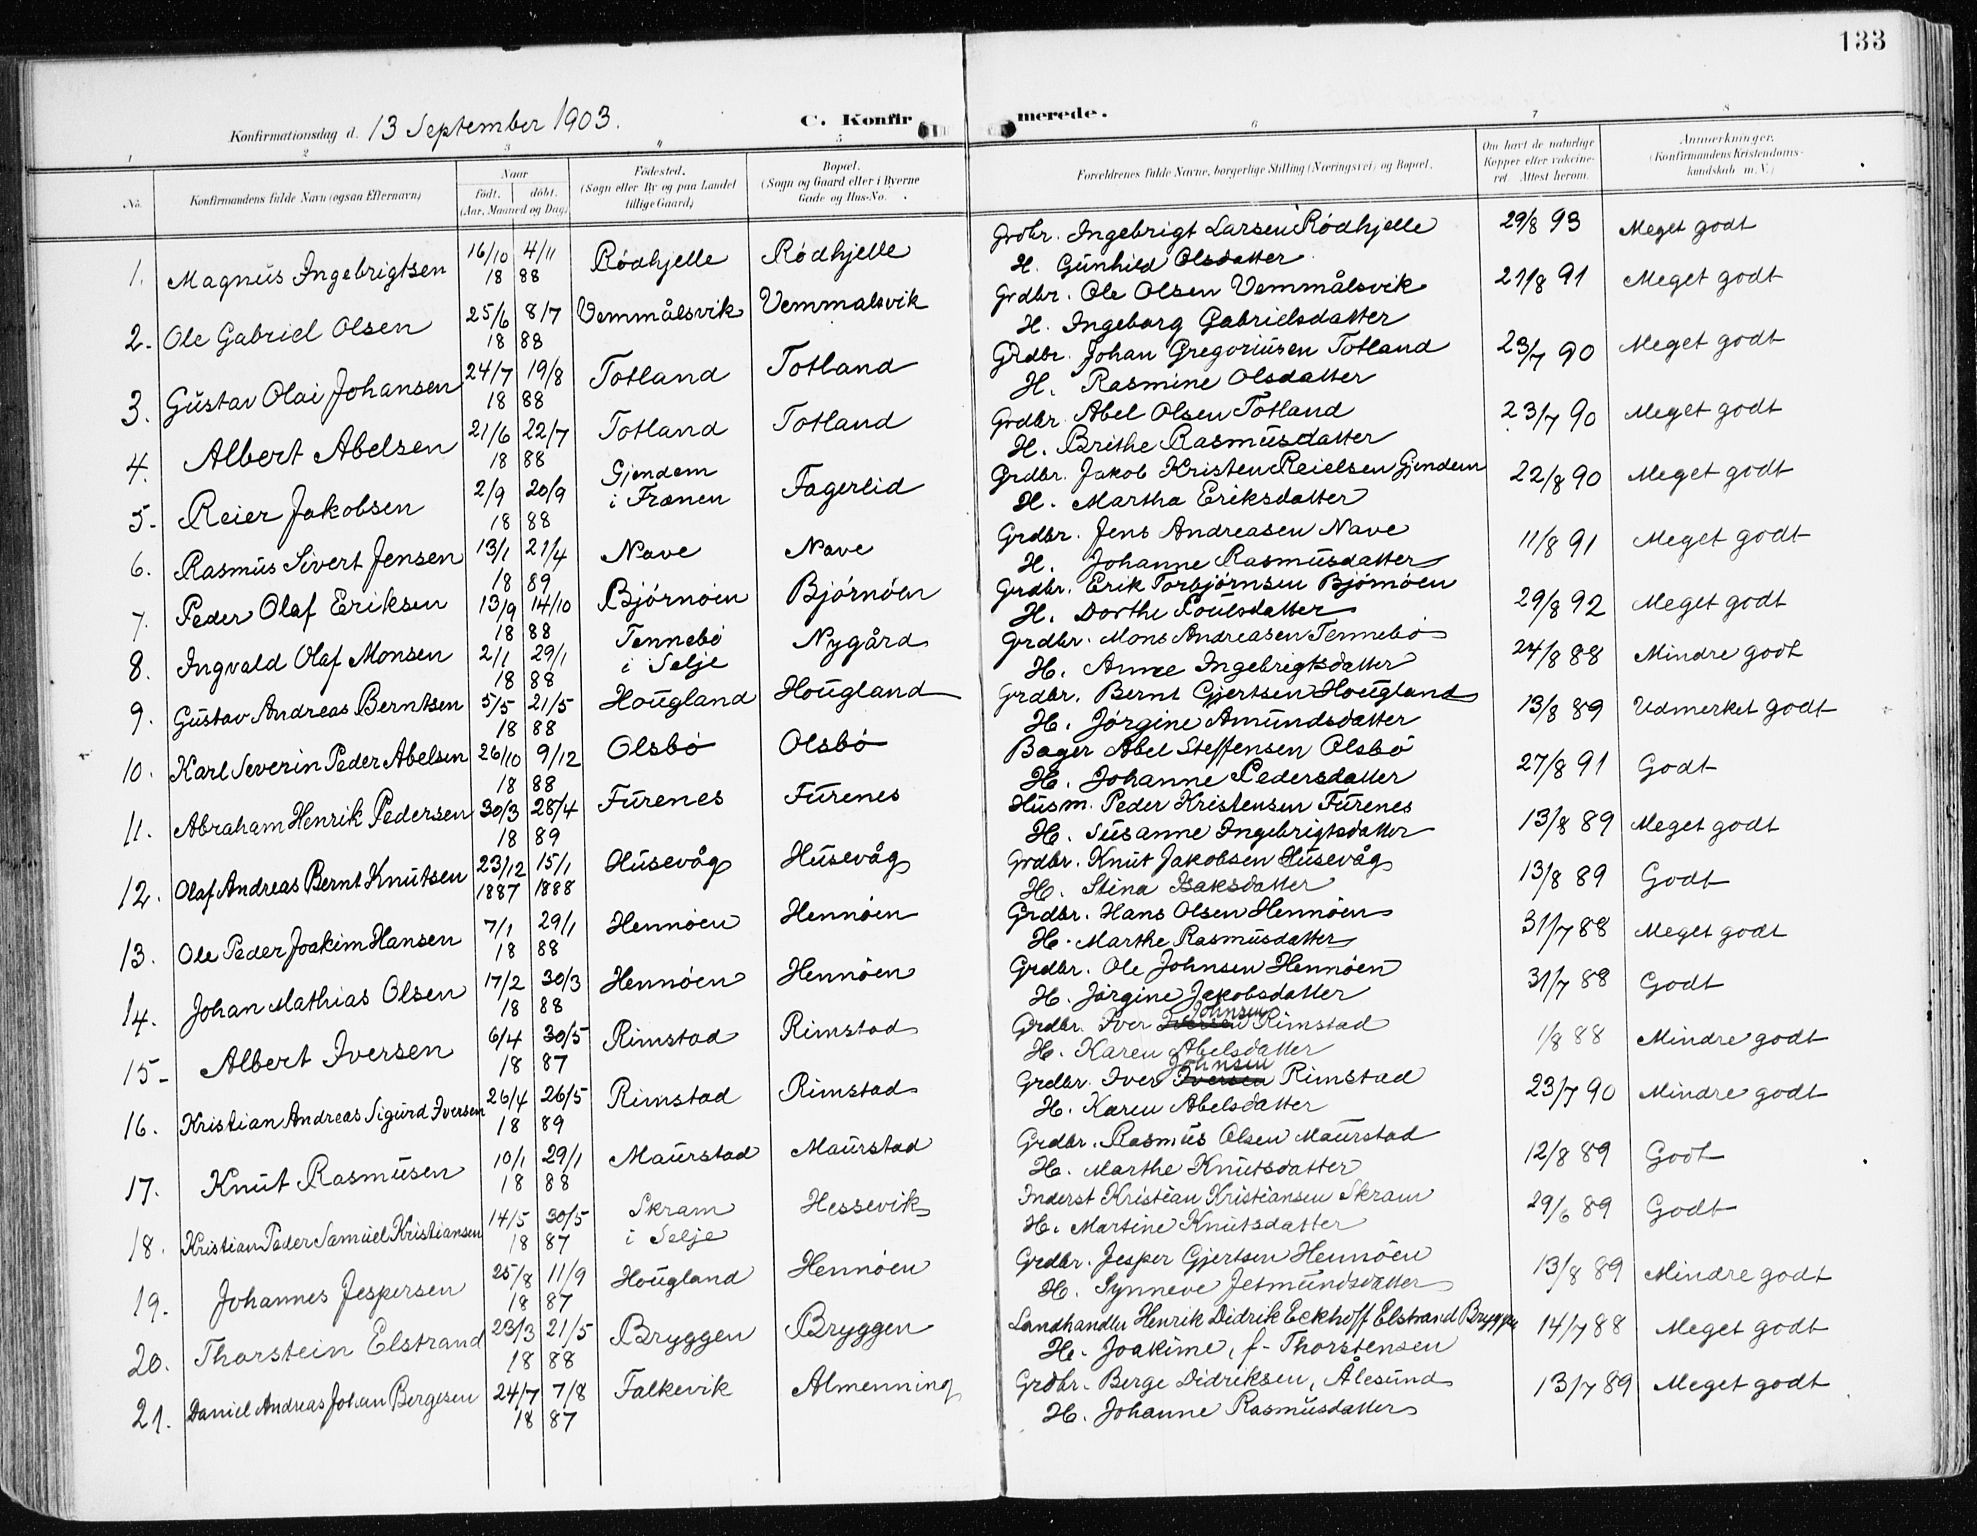 133
Konfirmationsdag d. 13 September 1903. C. Konfirmerede.
1 2 3 4 5 6 7 8
No. Konfirmandens fulde Navn (ogsaa Efternavn) Naar født. døbt. (Aar, Maaned og Dag) Fødested. (Sogn eller By og paa Landet tillige Gaard) Bopæl. (Sogn og Gaard eller i Byerne Gade og Hus-No. Forældrenes fulde Navne, borgerlige Stilling (Næringsvei) og Bopæl. Om havt de naturlige Kopper eller vakcineret. Attest herom. Anmerkninger. (Konfirmandens Kristendomskundskab m. V.)
1. Magnus Ingebrigtsen 16/10 4/11 Rødhjelle Rødhjelle Grdbr. Ingebrigt Larsen Rødhjelle 29/8 93 Meget godt
18 88 H. Gunhild Olsdatter
2. Ole Gabriel Olsen 25/6 8/7 Vemmålsvik Vemmalsvik Grdbr. Ole Olsen Vemmålsvik 27/8 91 Meget godt
18 88 H. Ingeborg Gabrielsdatter
3. Gustav Olai Johansen 24/7 19/8 Totland Totland Grdbr. Johan Gregoriusen Totland 23/7 90 Meget godt
18 88 H. Rasmine Olsdatter
4. Albert Abelsen 21/6 22/7 Totland Totland Grdbr. Abel Olsen Totland 23/7 90 Meget godt
18 88 H. Brithe Rasmusdatter
5. Reier Jakobsen 2/9 20/9 Gjendem i Frænen Fagerlid Grdbr. Jakob Kristen Reielsen Gjendem 22/8 90 Meget godt
18 88 H. Martha Eriksdatter
6. Rasmus Sivert Jensen 13/1 21/4 Nave Nave Grdbr. Jens Andreasen Nave 11/8 91 Meget godt
18 89 H. Johanne Rasmusdatter
7. Peder Olaf Eriksen 13/9 14/10 Bjørnøen Bjørnøen Grdbr. Erik Torbjørnsen Bjørnøen 29/8 92 Meget godt
18 88 H. Dorthe Poulsdatter
8. Ingvald Olaf Monsen 2/1 29/1 Tennebø i Selje Nygård Grdbr. Mons Andreasen Tennebø 24/8 88 Mindre godt
18 88 H. Anne Ingebrigtsdatter
9. Gustav Andreas Berntsen 5/5 21/5 Hougland Hougland Grdbr. Bernt Gjertsen Hougland 13/8 89 Udmerket godt
18 88 H. Jørgine Amundsdatter
10. Karl Severin Peder Abelsen 26/10 9/12 Olsbø Olsbø Bager Abel Steffensen Olsbø 27/8 91 Godt
18 88 H. Johanne Pedersdatter
11. Abraham Henrik Pedersen 30/3 28/4 Furenes Furenes Husm. Peder Kristensen Furenes 13/8 89 Meget godt
18 89 H. Susanne Ingebrigtsdatter
12. Olaf Andreas Bernt Knutsen 23/12 15/1 Husevåg Husevåg Grdbr. Knut Jakobsen Husevåg 13/8 89 Godt
1887 1888 H. Stina Isaksdatter
13. Ole Peder Joakim Hansen 7/1 29/1 Hennøen Hennøen Grdbr. Hans Olsen Hennøen 31/7 88 Meget godt
18 88 H. Marthe Rasmusdatter
14. Johan Mathias Olsen 17/2 30/3 Hennøen Hennøen Grdbr. Ole Johnsen Hennøen 31/7 88 Godt
18 88 H. Jørgine Jakobsdatter
15. Albert Iversen 6/4 30/5 Rimstad Rimstad Grdbr. Iver Iversen Johnsen Rimstad 1/8 88 Mindre godt
18 87 H. Karen Abelsdatter
16. Kristian Andreas Sigurd Iversen 26/4 26/5 Rimstad Rimstad Grdbr. Iver Iversen Johnsen Rimstad 23/7 90 Mindre godt
18 89 H. Karen Abelsdatter
17. Knut Rasmusen 10/1 29/1 Maurstad Maurstad Grdbr. Rasmus Olsen Maurstad 12/8 89 Godt
18 88 H. Marthe Knutsdatter
18. Kristian Peder Samuel Kristiansen 14/5 30/5 Skram i Selje Hessevik Inderst Kristian Kristiansen Skram 29/6 89 Godt
18 87 H. Martine Knutsdatter
19. Johannes Jespersen 25/8 11/9 Hougland Hennøen Grdbr. Jesper Gjertsen Hennøen 13/8 89 Mindre godt
18 87 H. Synneve Jetmundsdatter
20. Thorstein Elstrand 23/3 21/5 Bryggen Bryggen Landhandler Henrik Didrik Eckhoff Elstrand Bryggen 14/7 88 Meget godt
18 88 H. Joakime, f. Thorstensen
21. Daniel Andreas Johan Bergesen 24/7 7/8 Falkevik Almenning Grdbr. Berge Didriksen, Ålesund 13/7 89 Meget godt
18 87 H. Johanne Rasmusdatter